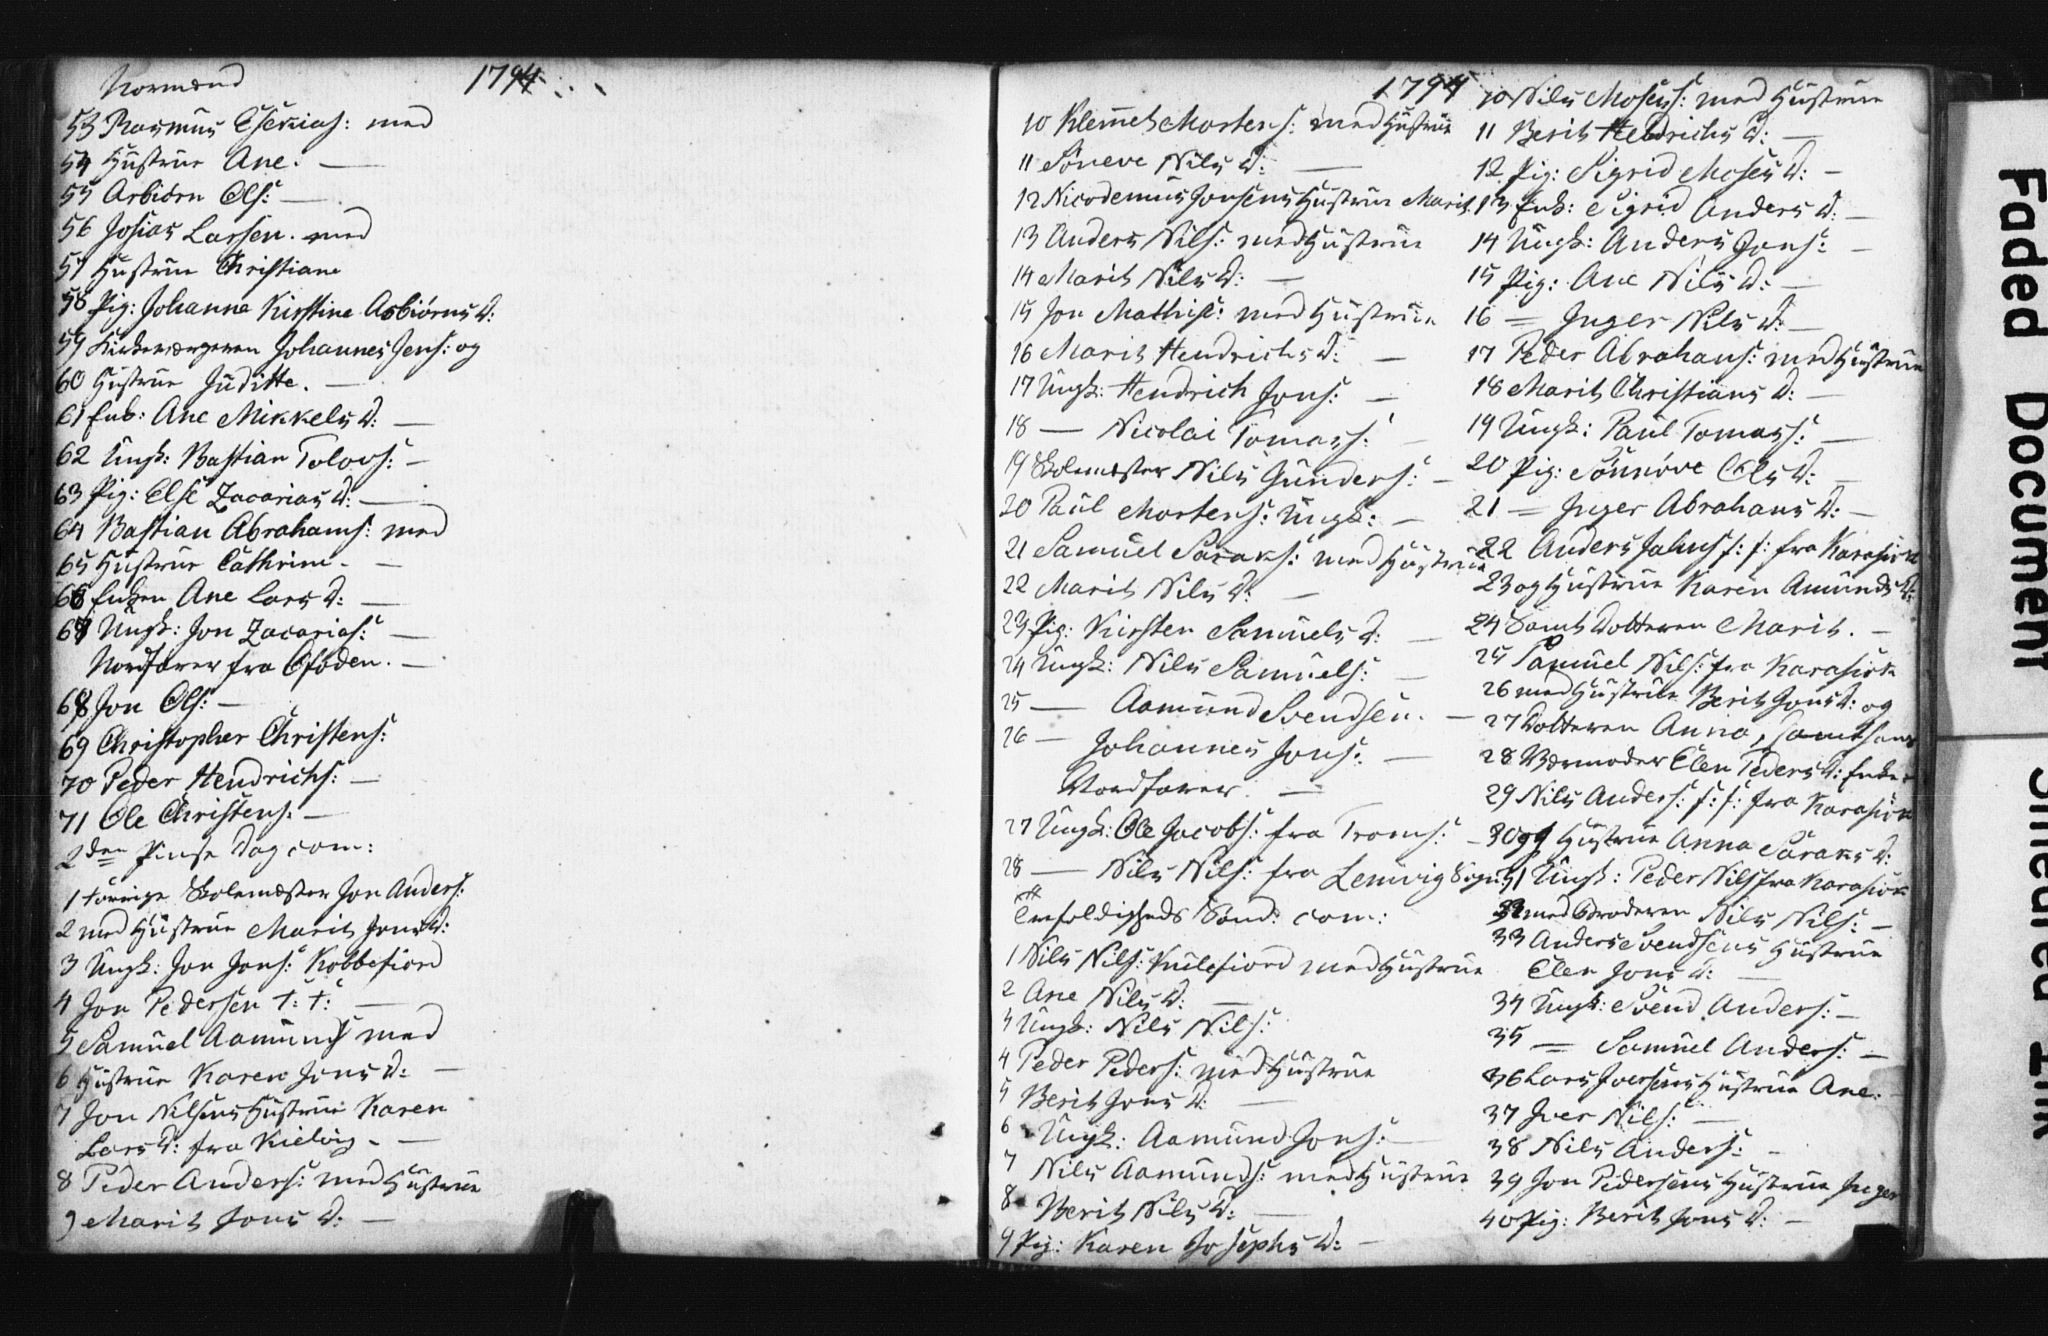 Normænd 1794
53 Rasmus Esekias: med
54 Hustrue Ane. —
55 Asbiörn Ols: —
56 Josias Larsen. med
57 Hustrue Christiane
58 Pig: Johanna Kirstine Asbiörns D:
59 Kirkeværgeren Johannes Jens: og
60 Hustrue Juditte. —
61 Enk: Ane Mikkels D: —
62 Ungk: Bastian Tolovs: —
63 Pig: Else Zacarias D: —
64 Bastian Abrahams: med
65 Hustrue Cathrine. —
66 Enken Ane Lars D: —
67 Ungk: Jon Zacarias: —
Nordfarer fra Ofoden. —
68 Jon Ols: —
69 Christopher Christens:
70 Peder Hendrichs: —
71 Ole Christens: —
2den Pinse Dag com:
1 forrige Skolemester Jon Anders:
2 med Hustrue Marit Jons D:
3 Ungk: Jon Jons: Kobbefiord
4 Jon Pedersen f: f: —
5 Samuel Aamunds med
6 Hustrue Karen Jons D: —
7 Jon Nilsens Hustrue Karen
Lars D: fra Kielvig. —
8 Peder Anders: med Hustrue
9 Marit Jons D: —
1794
10 Klemet Mortens: med Hustrue
11 Söneve Nils D: —
12 Nicodemus Jonsens Hustrue Marit
13 Anders Nils: med Hustrue
14 Marit Nils D: —
15 Jon Mathis: med Hustrue
16 Marit Hendrichs D: —
17 Ungk: Hendrich Jons: —
18 — Nicolai Tomas: —
19 Skolemester Nils Gunders: —
20 Paul Mortens: Ungk: —
21 Samuel Saraks: med Hustrue
22 Marit Nils D: —
23 Pig: Kirsten Samuels D: —
24 Ungk: Nils Samuels: —
25 — Aamund Svendsen. —
26 — Johannes Jons: —
Nordfarer. —
27 Ungk: Ole Jacobs: fra Troms: —
28 — Nils Nils: fra Lemvig Sogn
Trefoldigheds Sönd: com:
1 Nils Nils: Kulefiord med Hustrue
2 Ane Nils D: —
3 Ungk: Nils Nils:
4 Peder Peders: med Hustrue
5 Berit Jons D: —
6 Ungk: Aamund Jons: —
7 Nils Aamunds: med Hustrue
8 Berit Nils D: —
9 Pig: Karen Josephs D: —
10 Nils Moses: med Hustrue
11 Berit Hendrichs D: —
12 Pig: Sigrid Moses D: —
13 Enk: Sigrid Anders D: —
14 Ungk: Anders Jons: —
15 Pig: Ane Nils D: —
16 — Inger Nils D: —
17 Peder Abrahams: med Hustrue
18 Marit Christians D: —
19 Ungk: Paul Tomas: —
20 Pig: Sönnöve Ols D: —
21 — Inger Abrahams D: —
22 Anders Jahns f: f: fra Karasiok
23 og Hustrue Karen Amunds D:
24 Samt Dotteren Marit. —
25 Samuel Nils: fra Karasiok
26 med Hustrue Berit Jons D: og
27 Dotteren Anna, samt hans
28 Værmoder Elen Peders D: Enke
29 Nils Anders: f: f: fra Karasiok
30 og Hustrue Anna Saraks D:
31 Ungk: Peder Nils fra Karasiok
32 med Broderen Nils Nils: —
33 Anders Svendsens Hustrue
Elen Jons D: —
34 Ungk: Svend Anders: —
35 — Samuel Anders: —
36 Lars Iversens Hustrue Ane. —
37 Iver Nils: —
38 Nils Anders: —
39 Jon Pedersens Hustrue Inger
40 Pig: Berit Jons D: —
Faded Document